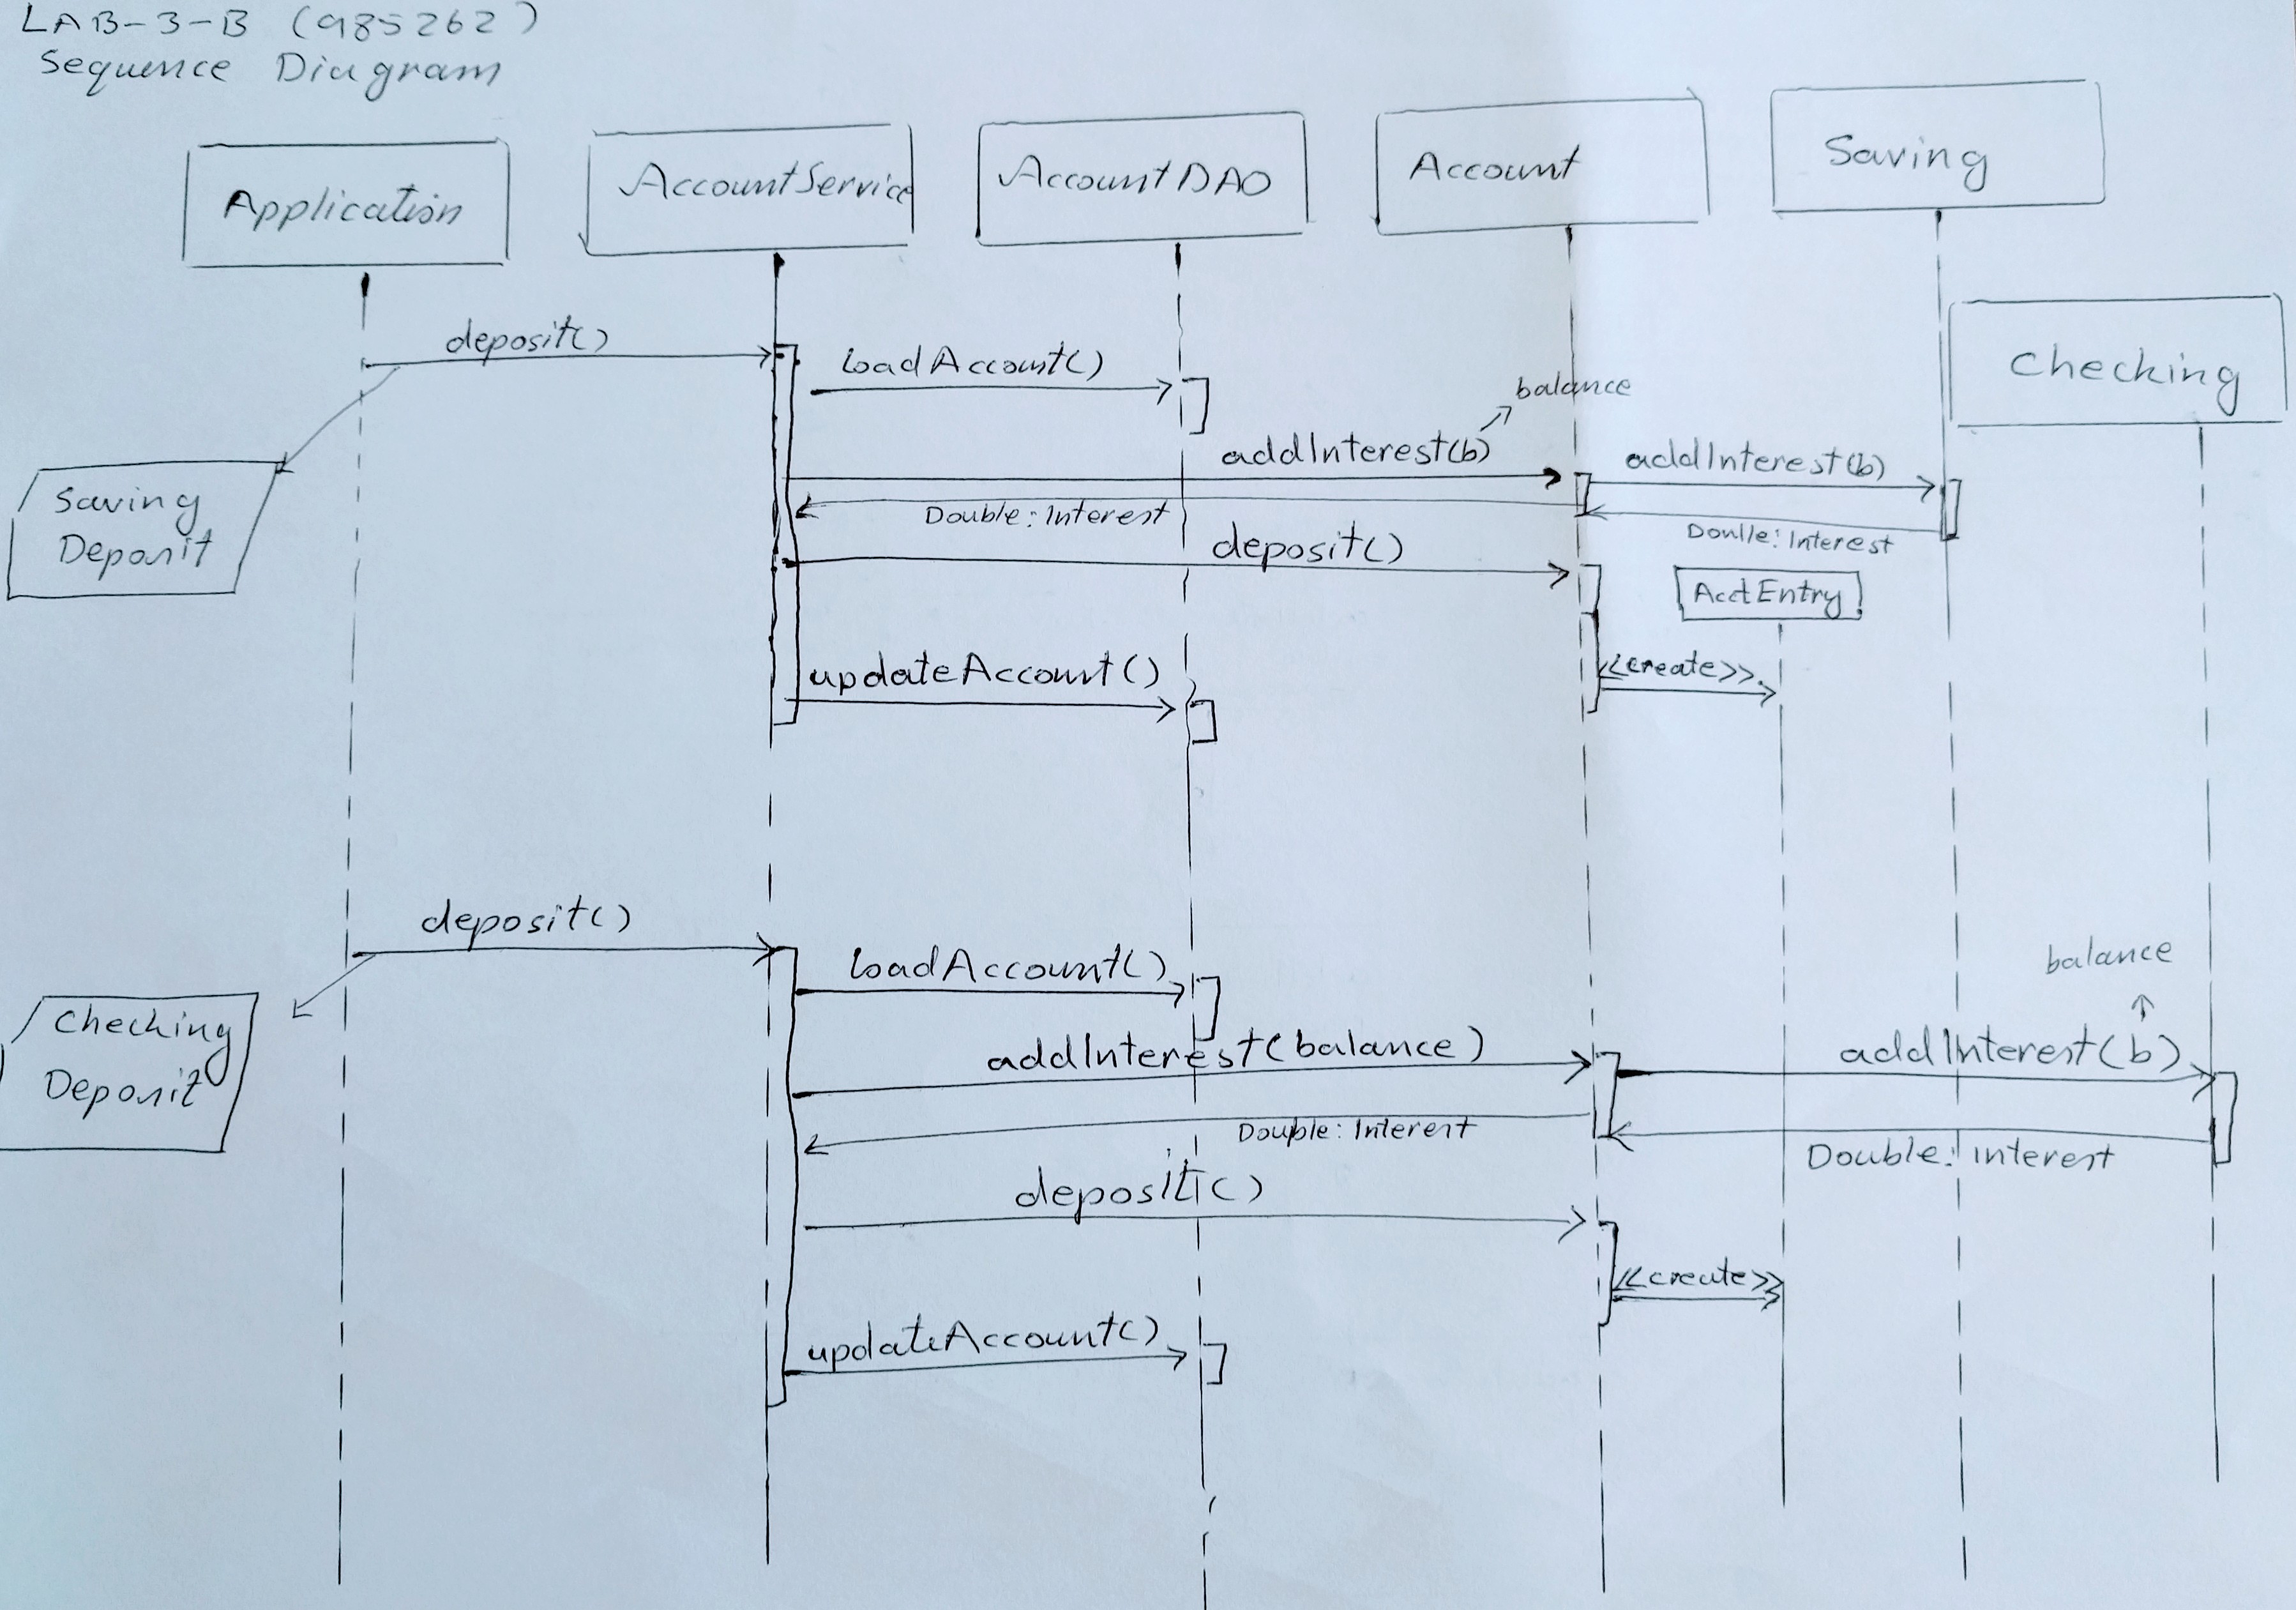 LAB-3-B (985262)
Sequence Diagram
Application
AccountService
AccountDAO
Account
Saving
Checking
deposit()
loadAccount()
balance
addInterest(b)
addInterest(b)
Double: Interest
Donlle: Interest
Saving
Deposit
deposit()
AcctEntry
updateAccount()
<<create>>
deposit()
loadAccount()
balance
Checking
Deposit
addInterest(balance)
addInterest(b)
Double: Interest
Double: interest
deposit()
<<create>>
updateAccount()